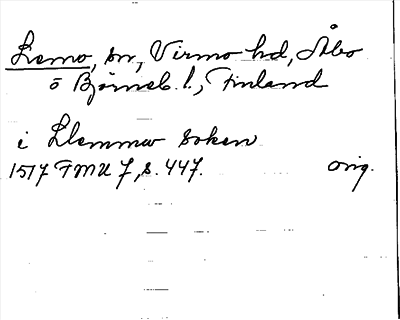 Lemo, sn, Virmo hd, Åbo
o Björneb. l., Finland
i Llemmw soken
1517 FMU 7, s. 447. orig.